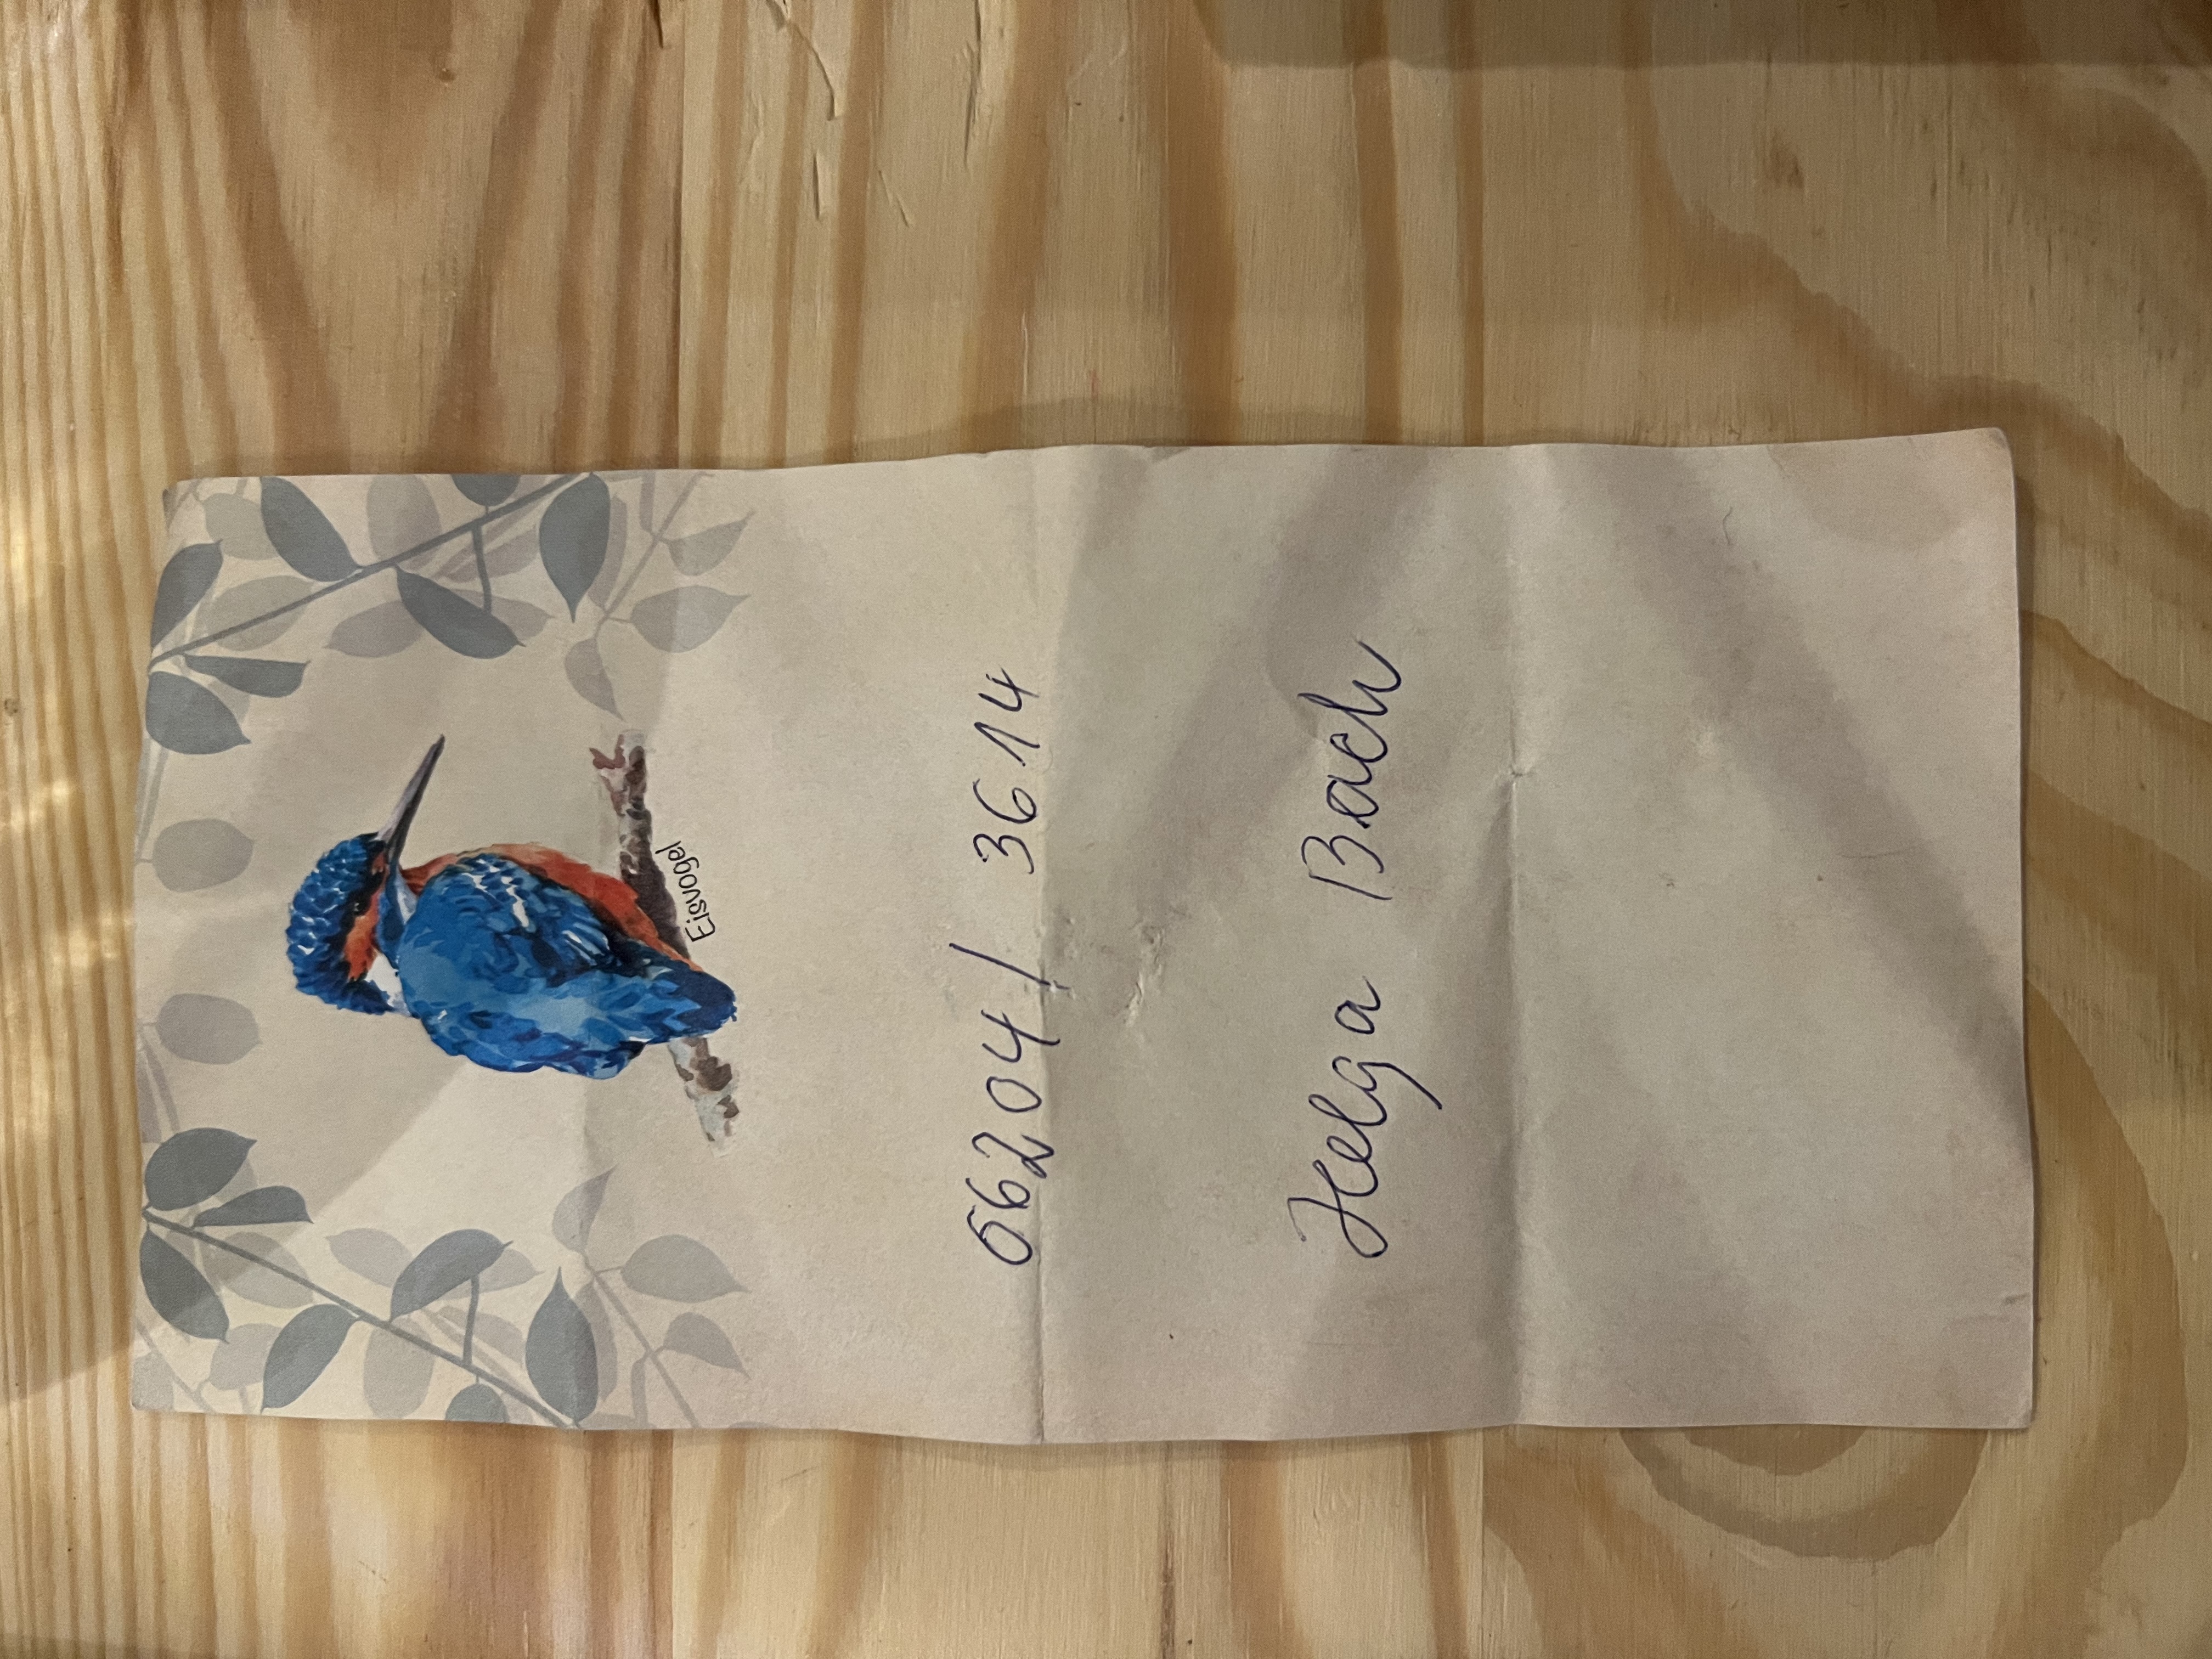 Eisvogel
06204/ 3614
Helga Bach